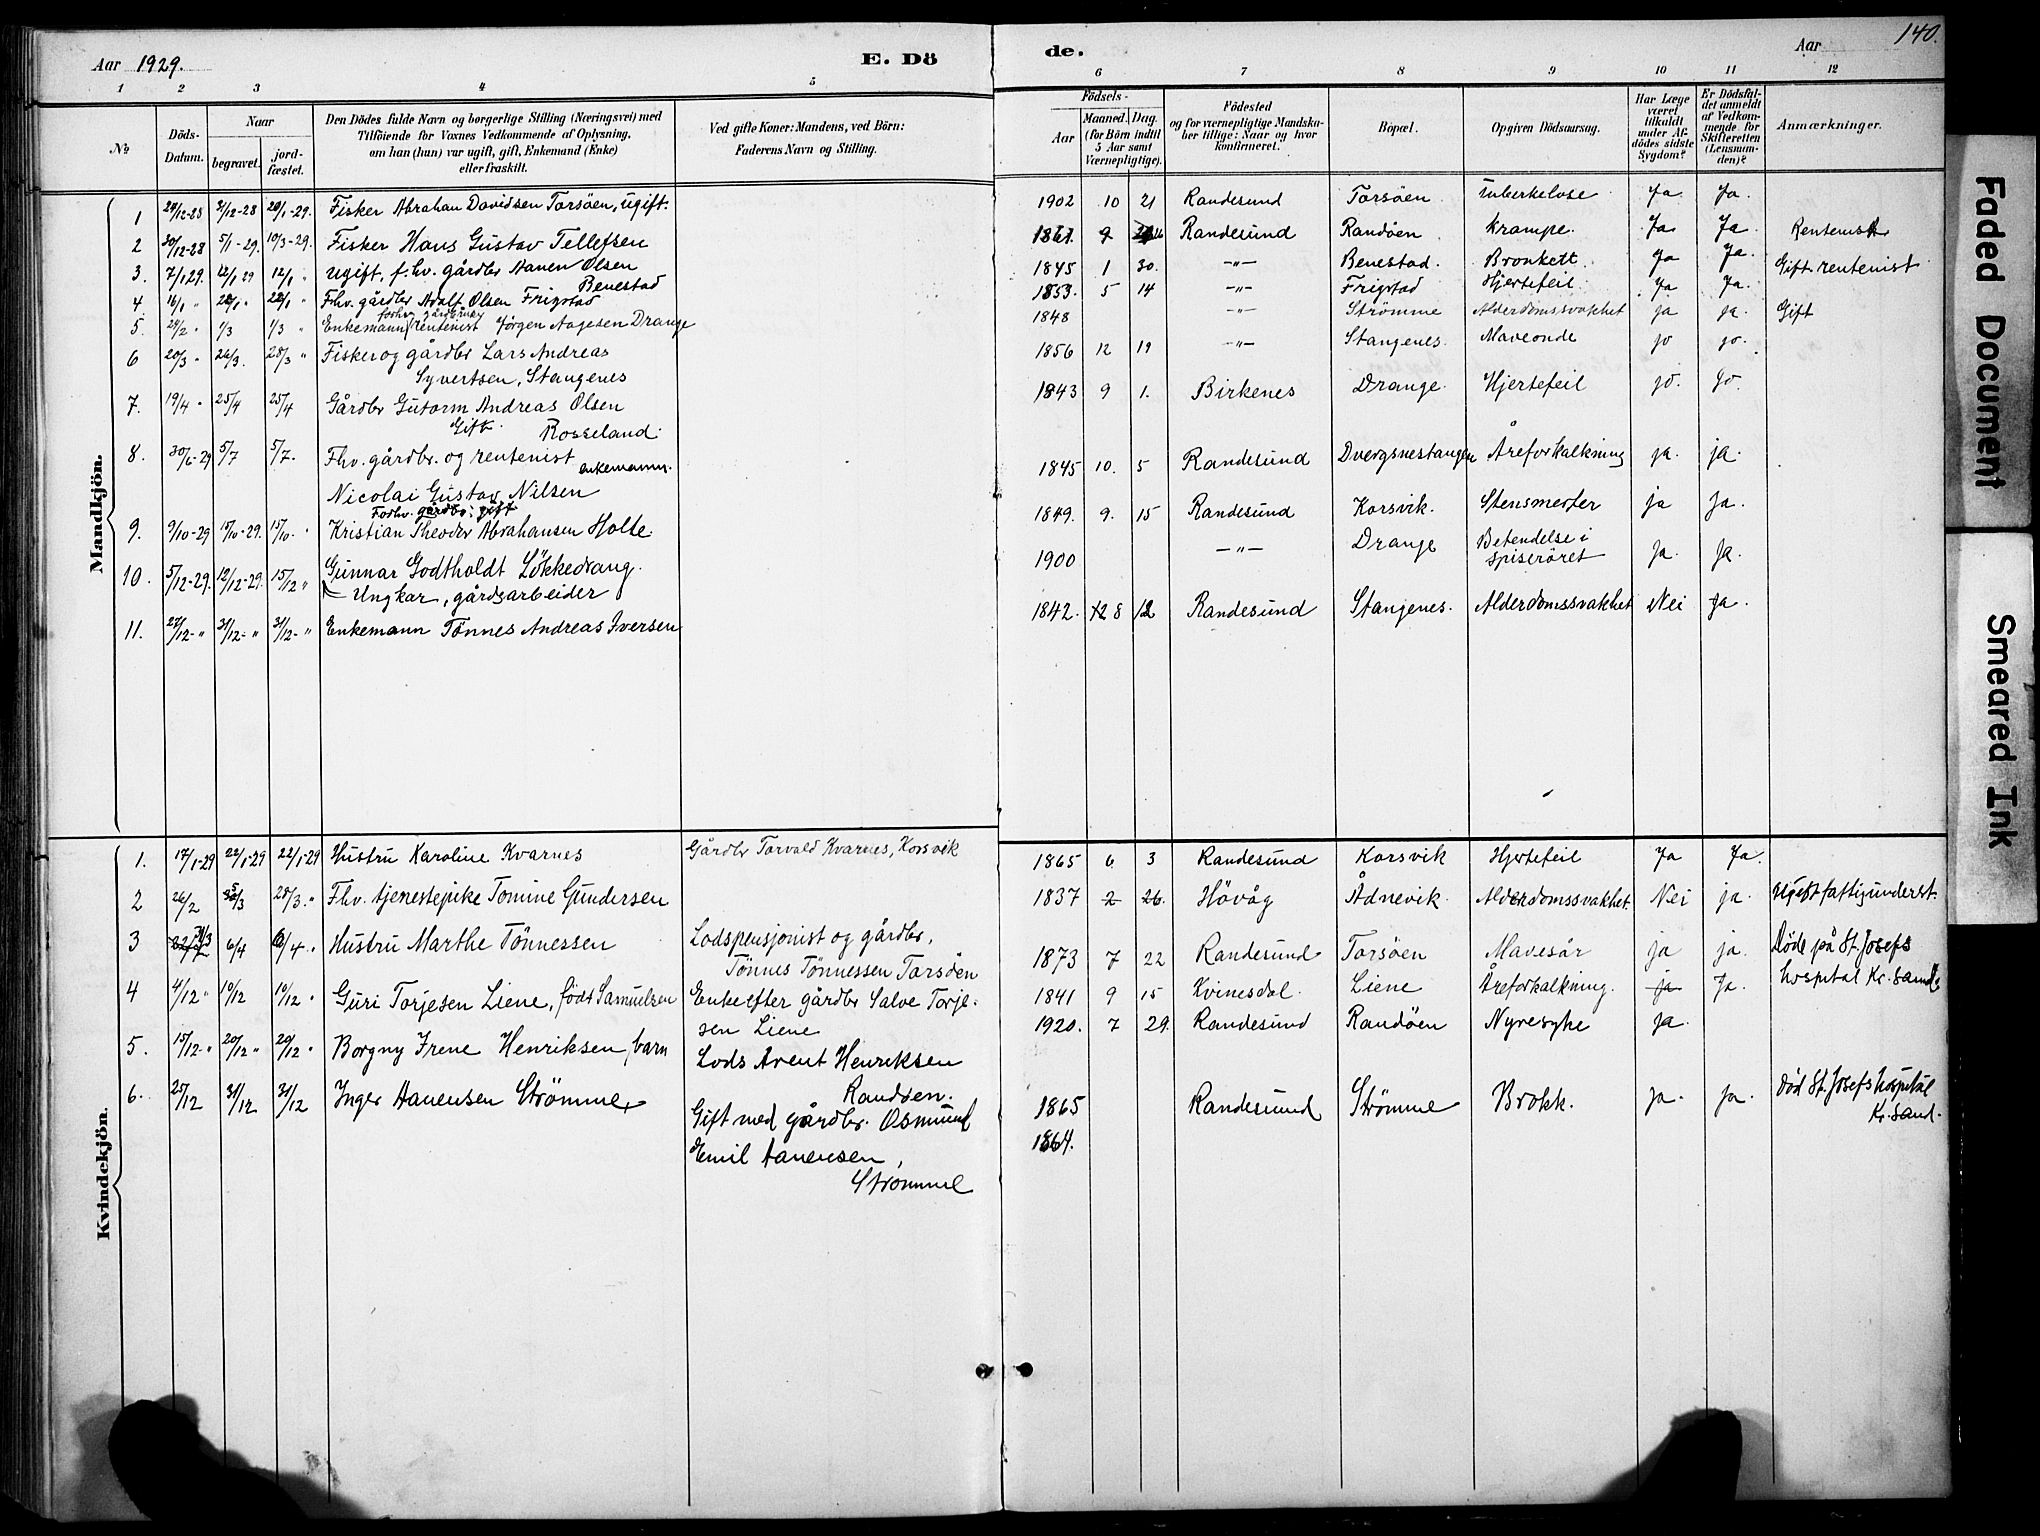 140.
Aar 1929. E. Dö de. Aar
1 2 3 4 5 6 7 8 9 10 11 12
№ Döds-Datum. Naar begravet. jordfæstet. Den Dödes fulde Navn og borgerlige Stilling (Næringsvei) med Tilföiende for Voxnes Vedkommende af Oplysning, om han (hun) var ugift, gift, Enkemand (Enke) eller fraskilt. Ved gifte Koner: Mandens, ved Börn: Faderens Navn og Stilling. Födsels- Aar Maaned. Dag. (for Börn indtil 5 Aar samt Værnepligtige). Födested og for værnepligtige Mandskaber tillige: Naar og hvor konfirmeret. Bopæl. Opgiven Dödsaarsag. Har Læge været tilkaldt under Afdödes sidste Sygdom? Er Dödsfaldet anmeldt af Vedkommende for Skifteretten (Lensmanden)? Anmærkninger.
Mandkjön.
1 28/12-28 31/12-28 20/1-29. Fisker Abrahan Davidsen Torsöen, ugift. 1902 10 21 Randesund Torsöen tuberkelose Ja Ja.
2 30/12-28 5/1-29. 10/3-29. Fisker Hans Gustav Tellefsen 1861. 9 Randesund Randöen Krampe. Ja Ja. Rentenist
3. 7/1 29. 12/1 29 12/1 " Ugift. f. hv. gårdbr Aanen Olsen
Benestad 1845 1 30. -"- Benestad. Bronkett. ja Ja. Gift rentenist
4. 16/1 " 22/1 " 22/1 " Fhv. gårdbr Adolf Olsen Frigstad 1853. 5 14 -"- Frigstad Hjertefeil. Ja Ja.
5. 24/2 " 1/3 1/3 " Enkemann rentenist Jörgen Aagesen Drange 1848 -"- Strömme Alderdomssvakhet ja ja. Gift
6 20/3 " 26/3. 28/3 " Fisker og gårdbr Lars Andreas
Syvertsen, Stangenes 1856 12 19 -"- Stangenes. Maveonde ja ja.
7. 19/4 " 25/4 25/4 Gårdbr Gutorm Andreas Olsen
Gift. Rosseland. 1843 9 1. Birkenes Drange. Hjertefeil ja. ja.
8. 30/6-29 5/7 5/7. Fhv. gårdbr. og rentenist enkemann.
Nicolai Gustav Nilsen 1845 10. 5 Randesund Dvergsnestangen Åreforkalkning ja. ja.
Forhv. gårdbr: gift
9. 9/10-29 15/10-29. 15/10. " Kristian Theodor Abrahansen Holte. 1849. 9. 15 Randesund Korsvik. Stensmerter ja Ja.
10. 5/12-29. 12/12-29. 15/12 " Gunnar Godtholdt Lökkedrang.
Ungkar, gårdsarbeider 1900 -"- Drange Betendelse i spiseröret Ja. Ja.
11. 27/12-" 31/12-" 31/12-" Enkemann Tönnes Andreas Iversen 1842. 12 8 12 Randesund Stangenes. Alderdomssvakhet Nei Ja.
Kvindekjön.
1. 17/1-29 22/1-29 22/1-29 Hustru Karoline Kvarnes Gårdbr Torvald Kvarnes, Korsvik 1865 6 3 Randesund Korsvik Hjertefeil Ja Ja.
2 26/2 5/3 28/3. " Fhv. tjenestepike Tomine Gundersen 1837 2 26. Hövåg Ådnevik. Alderdomssvakhet. Nei ja. Ugift fattigunderst.
3 31/3 6/4 6/4. " Hustru Marthe Tönnessen Lodspensjonist og gårdbr.
Tönnes Tönnessen Torsöen 1873 7 22 Randesund Torsöen Mavesår ja ja. Döde på St. Josefs
hospital Kr. sand.
4 4/12 " 10/12 10/12 " Guri Torjesen Liene, födt Samuelsen Enke efter gårdbr Salve Torje-
sen Liene 1841 9 15 Kvinesdal. Liene Åreforkalkning. ja Ja.
5. 15/12 " 20/12 " 20/12 " Borgny Irene Henriksen, barn Lods Arent Henriksen
Randöen. 1920. 7 29. Randesund Randöen Nyresyke ja.
6. 25/12 31/12 31/12 Inger Aanensen Strömme, Gift med gårdbr. Osmund
Emil Aanensen,
Strömme 1865 Randesund Strömme Brokk. Ja. Ja. Död St. Josefs hospital
Kr. sand.
1864.
Faded Document
Smeared Ink